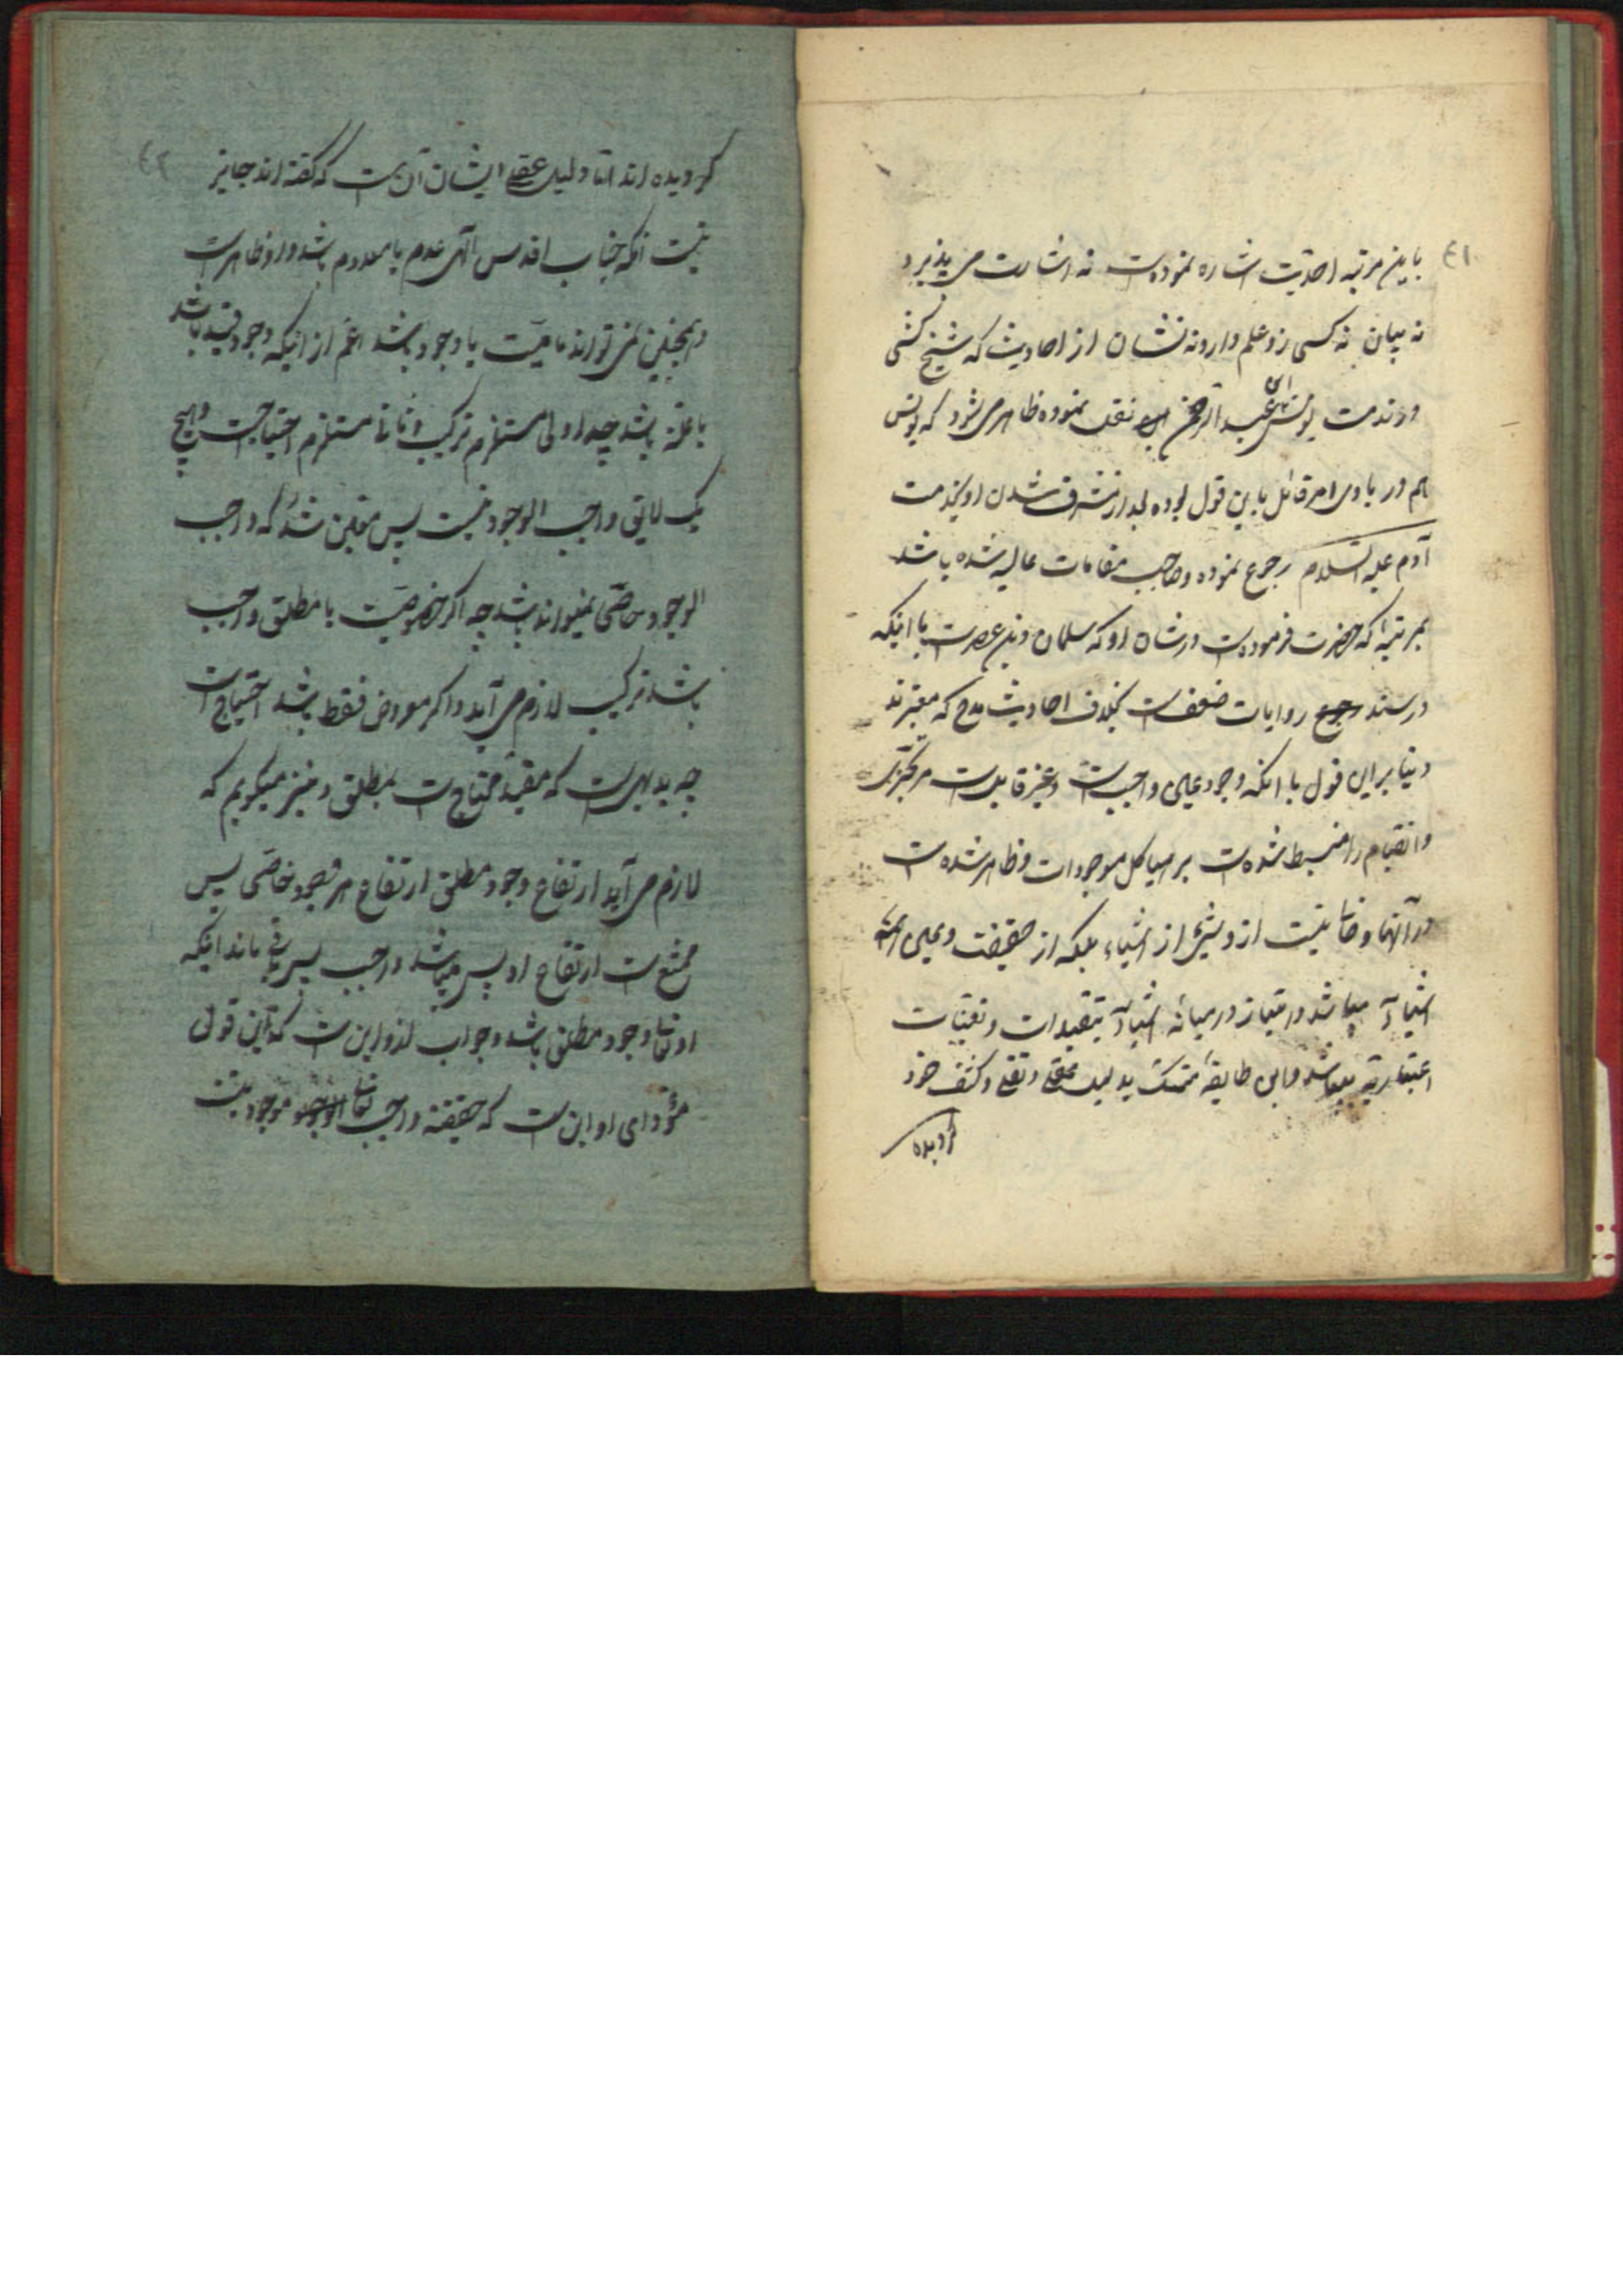 ٤١
باین مرتبه احدیت اشاره نموده‌است نه اشارت می پذیرد
نه بیان نه کسی زو علم دارد نه نشان از احادیث که شیخ کشی
در مذمت یونس بن عبد الرحمن نقل نموده ظاهر می شود که یونس
هم در بادی امر قائل باین قول بوده بعد از مشرف شدن او بخدمت
آدم علیه السلام رجوع نموده و صاحب مقامات عالیه شده باشد
بمرتبهٔ که حضرت فرموده‌است در شان او که سلمان و این عصرست با اینکه
در سند روایات ضعف است بخلاف احادیث مدح که معتبرند
و بنابر این قول با آنکه وجود عین واجبست و غیر قابلست مر تجزی
و انقسام را منبسط شده‌است بر هیاکل موجودات و ظاهر شده‌است
در آنها و خالی نیست ازو شیئ از اشیاء بلکه از حقیقت و عین
اشیاء میباشد و امتیاز در میانه اشیاء بتقیدات و تعینات
اعتباریه میباشد و این طایفه متمسک بدلیل عقلی و نقلی و کشف خود
گردیده
٤٢
گردیده‌اند اما دلیل عقلی ایشان آن است که گفته‌اند جایز
نیست آنکه جناب اقدس الهی عدم یا معدوم باشد و او ظاهرست
و همچنین نمی تواند ماهیت با وجود باشد اعم از اینکه وجود قید باشد
یا علت باشد چه اولی مستلزم ترکیب و ثانی مستلزم احتیاجست و هیچ
یک لایق واجب الوجود نیست پس متعین شد که واجب
الوجود خاصی نمیتواند باشد چه اگر خصوصیت با مطلق واجب
باشد ترکیب لازم می آید و اگر معروض فقط باشد احتیاج است
چه بدیهی است که مقید محتاج است بمطلق و نیز میگویم که
لازم می آید از ارتفاع وجود مطلق ارتفاع هر وجود خاصی پس
ممتنع است ارتفاع او پس میباشد واجب پس باقی ماند اینکه
او تعالی وجود مطلق باشد و جواب ازو این است که این قول
مؤدای او این است که حقیقة واجب تعالی موجود نیست